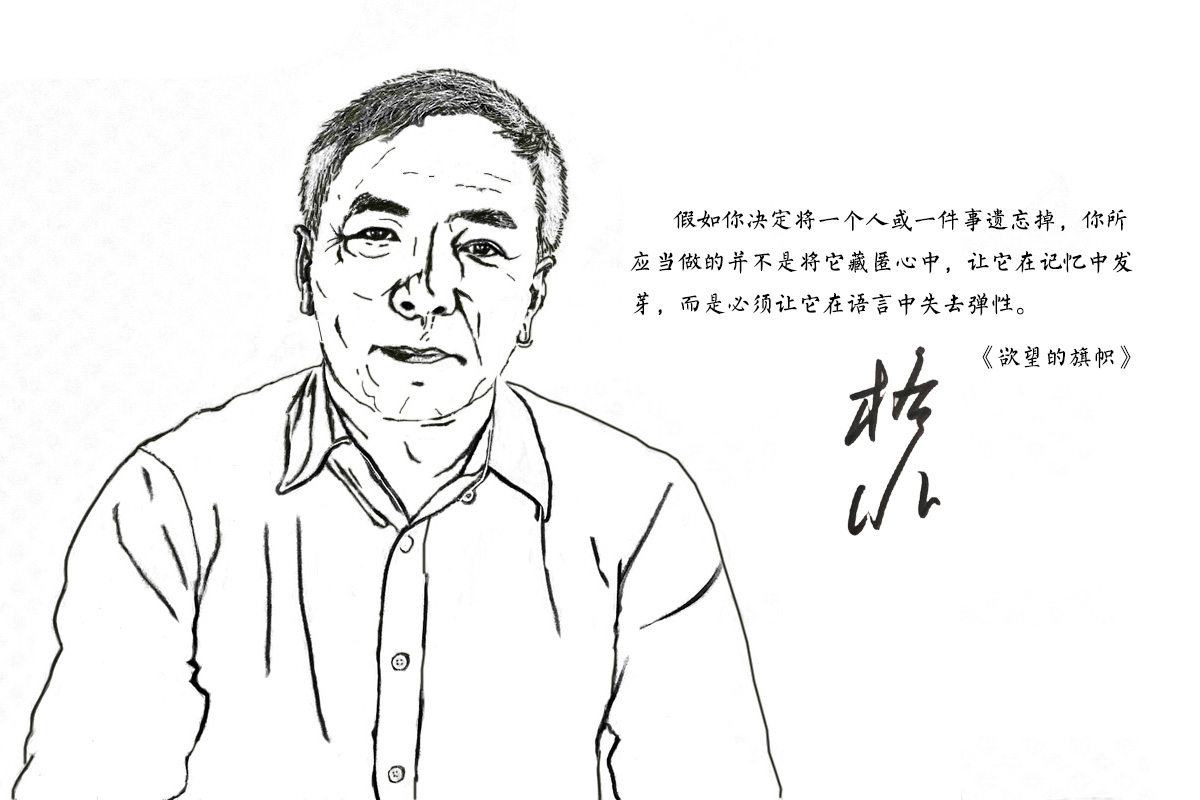 假如你决定将一个人或一件事遗忘掉，你所
应当做的并不是将它藏匿心中，让它在记忆中发
芽，而是必须让它在语言中失去弹性。
《欲望的旗帜》
格非